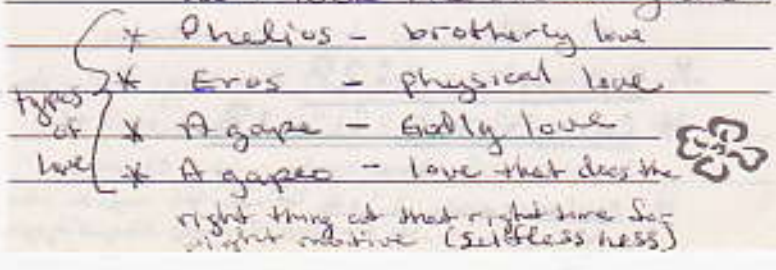 * Phelios - brotherly love
* Eros - physical love
types of love
* Agape - Godly love
* Agapeo - love that does the
right thing at that right time for
right motive (selflessness)